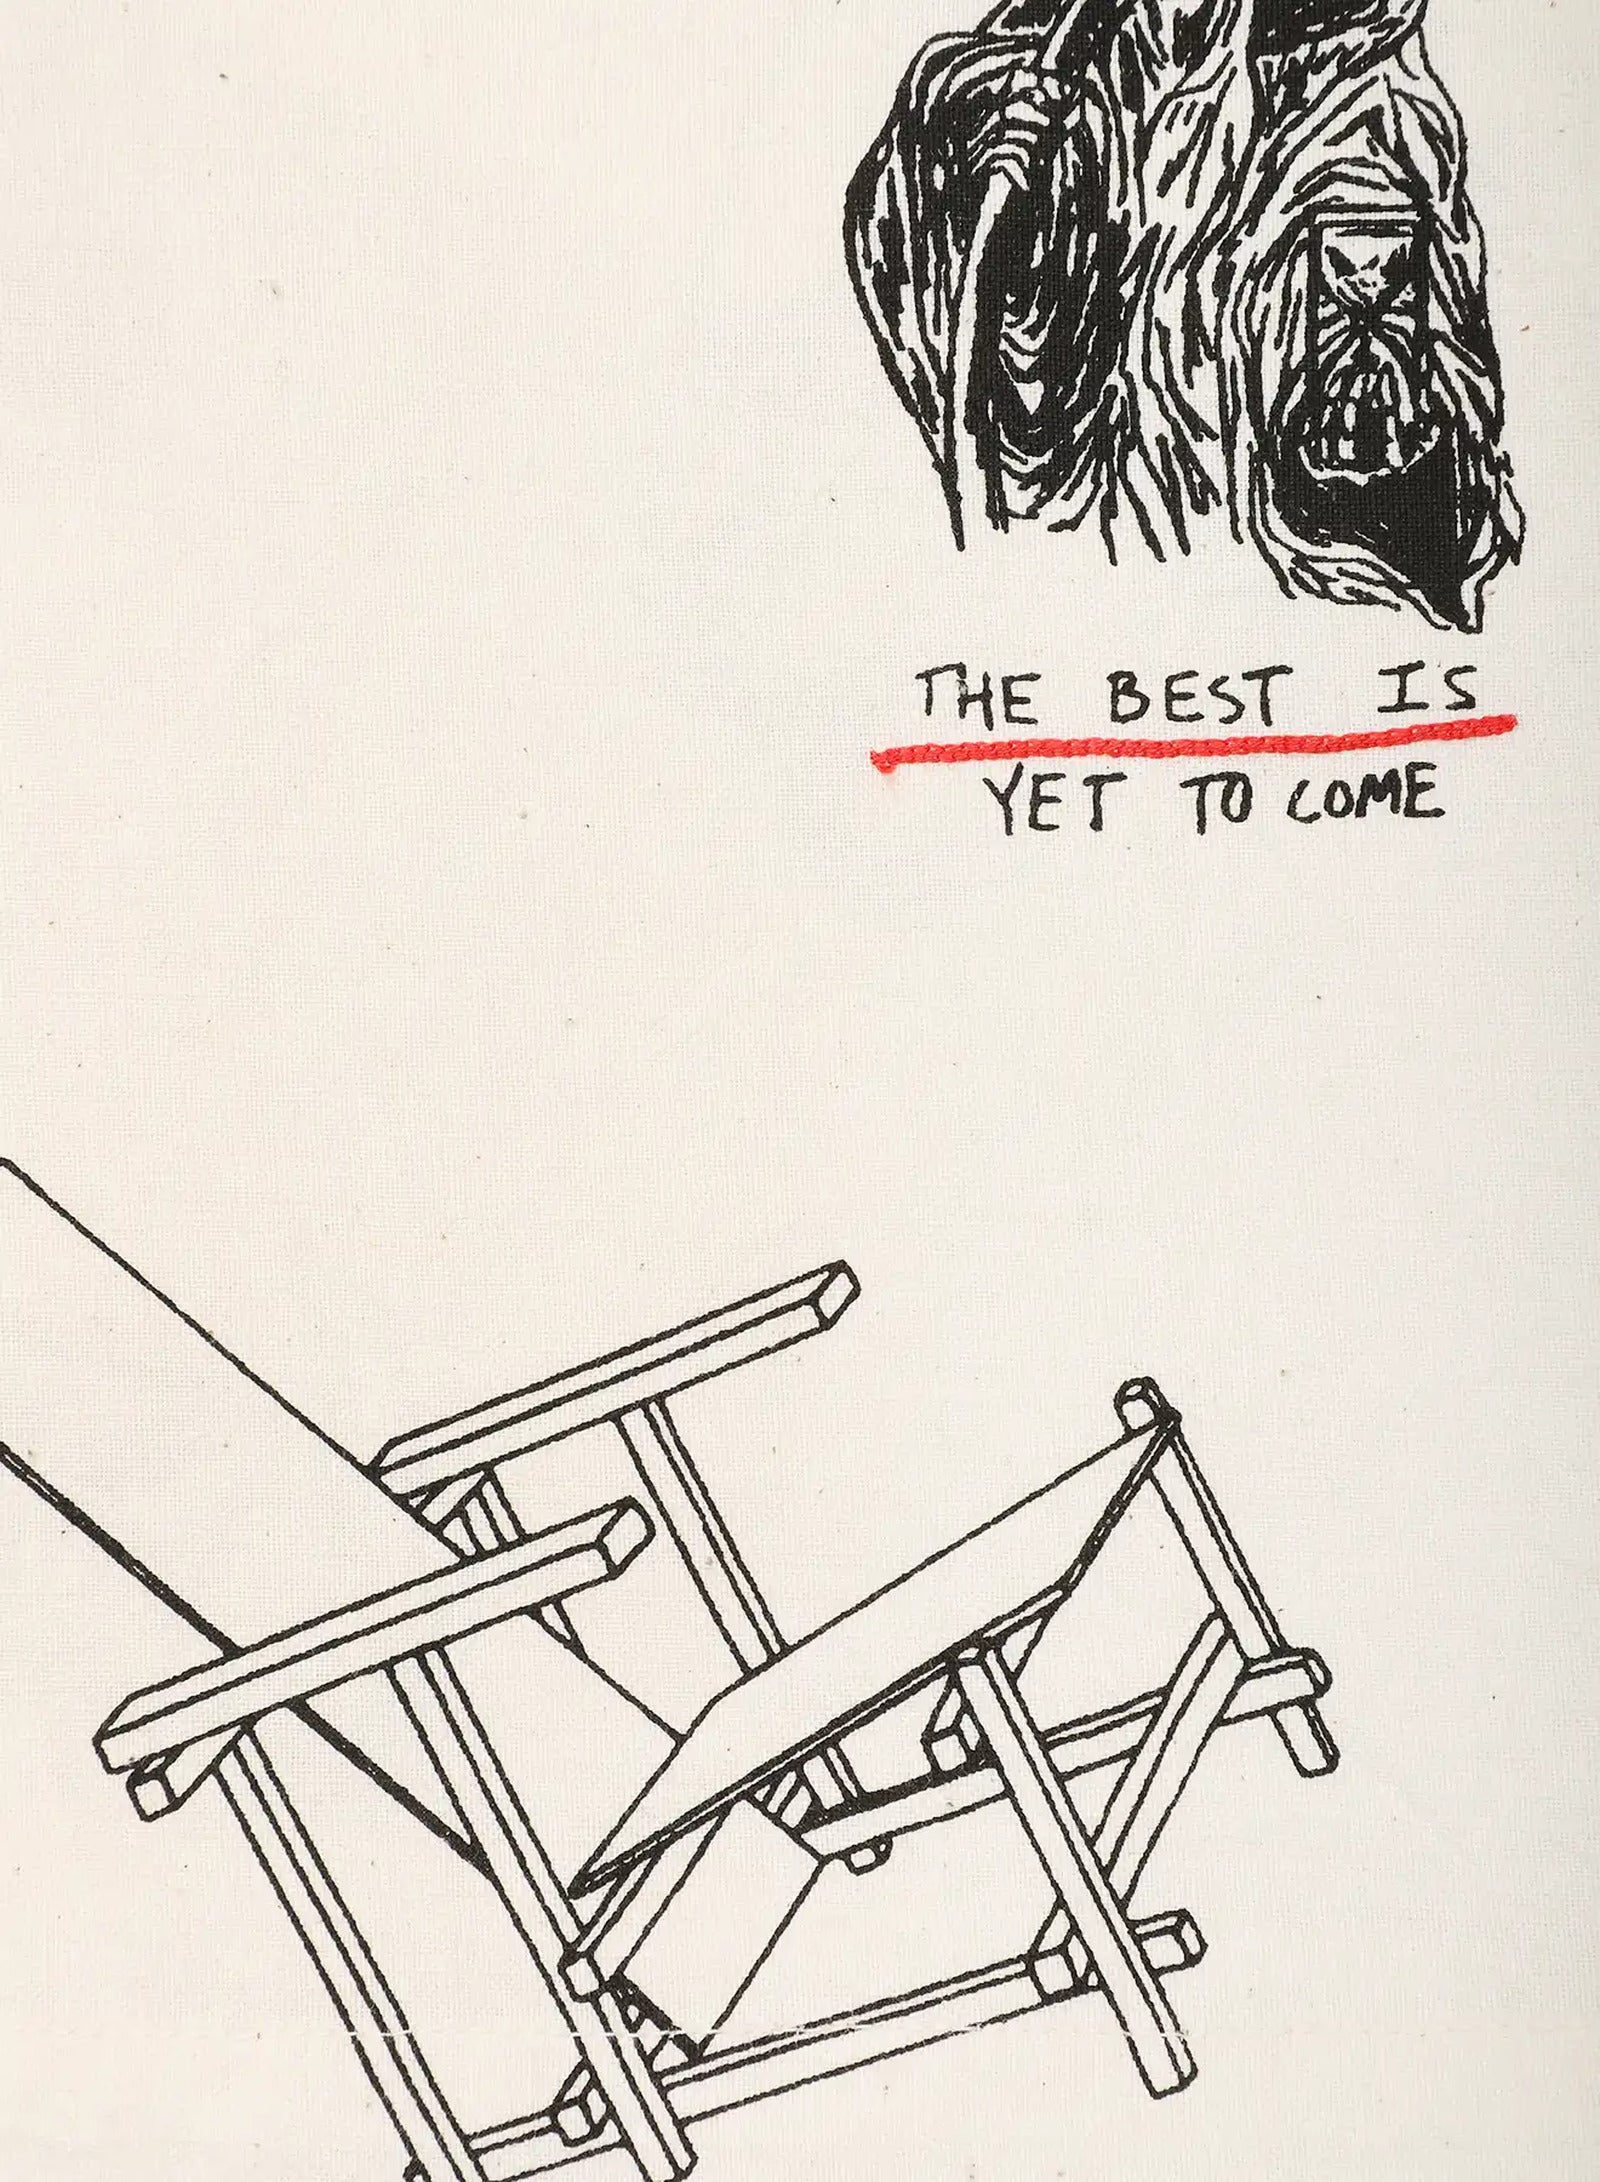 THE BEST IS
YET TO COME